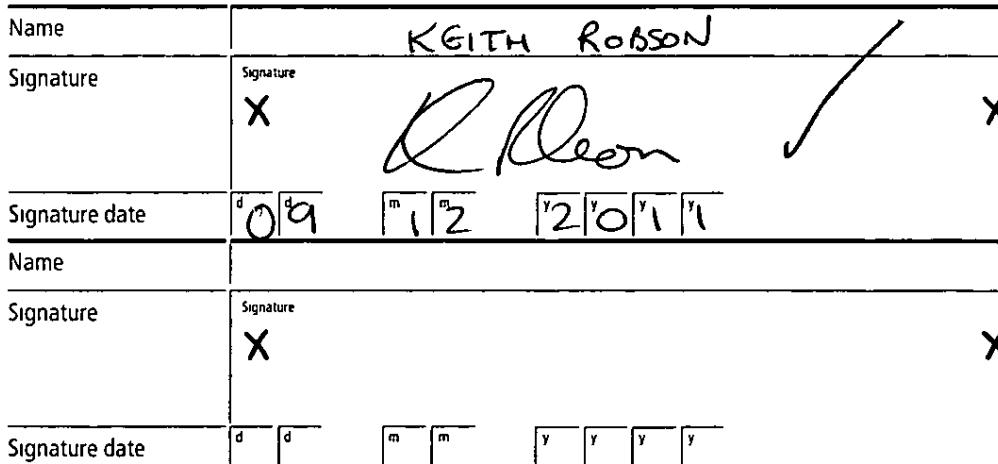 Name KEITH ROBSON
Signature Signature
X X
Signature date d 0 d 9 m 1 m 2 y 2 y 0 y 1 y 1
Name
Signature Signature
X X
Signature date d d m m y y y y